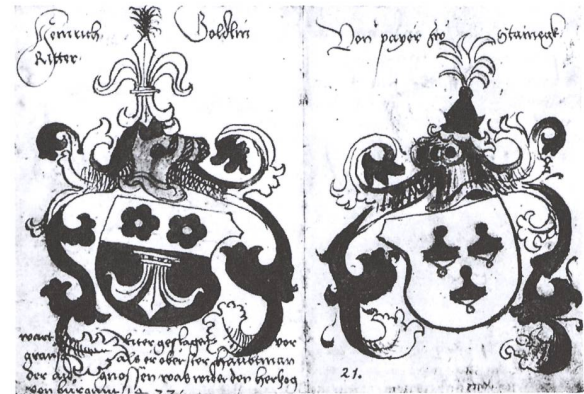 Heinrich Goldlin
Ritter.
Von payer zů Stainegk.
wart Ritter geslagen vor
granse als er oberster haubtman
der aid gnossen was wider den herzog
von burguni 1477
21.